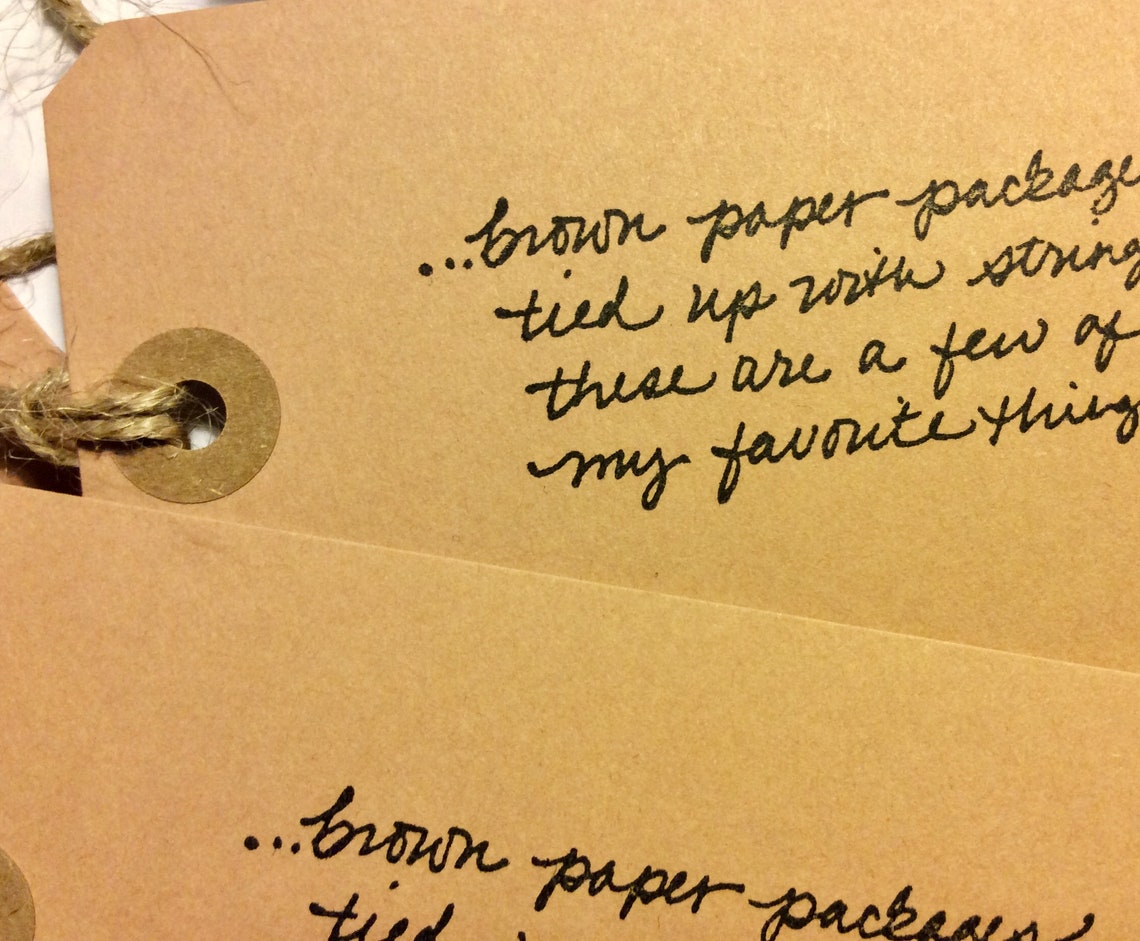 ...brown paper package
tied up with string
these are a few of
my favorite thing
...brown paper packages
tied